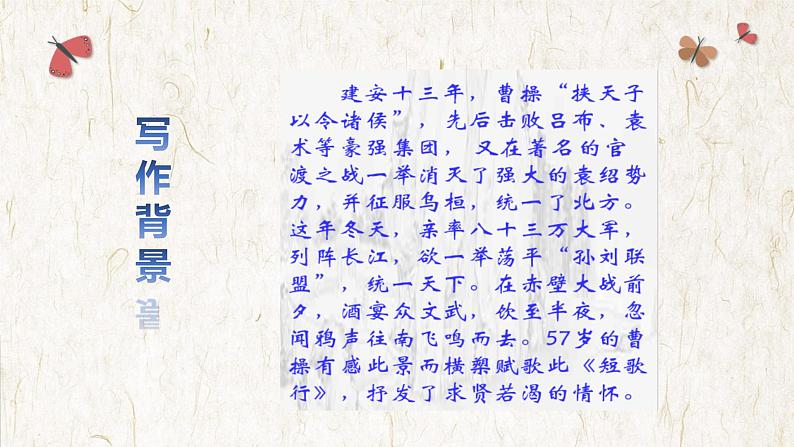 写作背景
建安十三年，曹操“挟天子
以令诸侯”，先后击败吕布、袁
术等豪强集团， 又在著名的官
渡之战一举消灭了强大的袁绍势
力，并征服乌桓，统一了北方。
这年冬天，亲率八十三万大军，
列阵长江，欲一举荡平“孙刘联
盟”，统一天下。在赤壁大战前
夕，酒宴众文武，饮至半夜，忽
闻鸦声往南飞鸣而去。57岁的曹
操有感此景而横槊赋歌此《短歌
行》，抒发了求贤若渴的情怀。